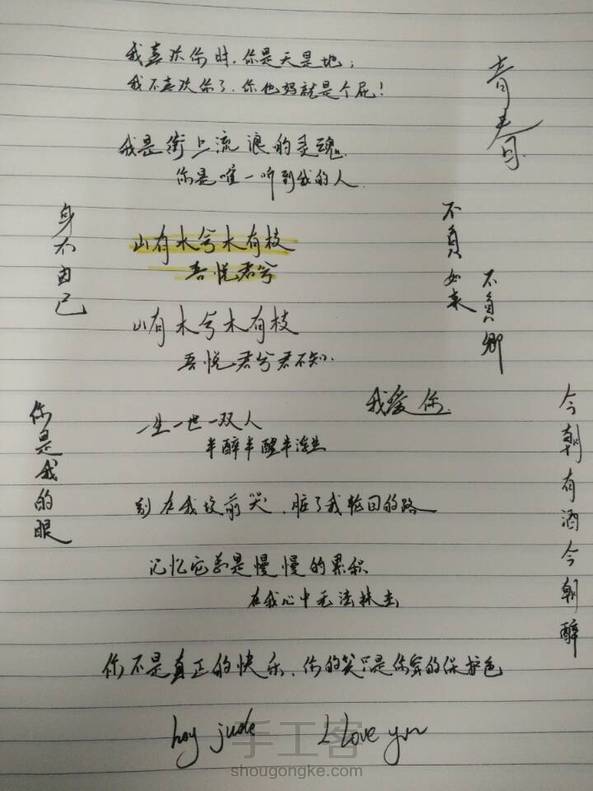 我喜欢你时，你是天是地；
我不喜欢你了，你他妈就是个屁！
青春
我是街上流浪的灵魂
你是唯一听到我的人
身不由己
山有木兮木有枝
吾悦君兮
不负如来
不负卿
山有木兮木有枝
吾悦君兮君不知.
我爱你
你是我的眼
一生一世一双人
半醉半醒半浮生
今朝有酒今朝醉
别在我坟前哭，脏了我轮回的路
记忆它总是慢慢的累积
在我心中无法抹去
你不是真正的快乐，你的笑只是你穿的保护色
hey jude
I Love you
手工客
shougongke.com